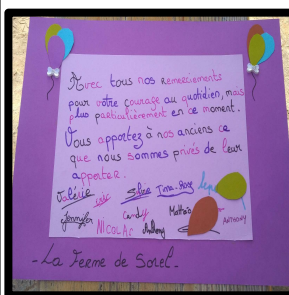 Avec tous nos remerciements
pour votre courage au quotidien, mais
plus particulièrement en ce moment.
Vous apportez à nos anciens ce
que nous sommes privés de leur
apporter.
Valérie
Jennifer Candy Mathis
NICOLAS Anthony ANTHONY
- La Ferme de Sorel -